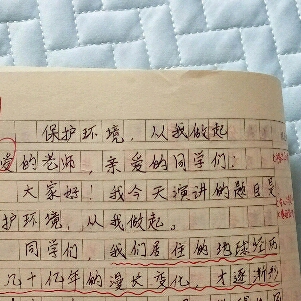 保护环境，从我做起
爱的老师，亲爱的同学们：
大家好！我今天演讲的题目是
护环境，从我做起。
同学们，我们居住的地球经历
几十亿年的漫长变化，才逐渐形